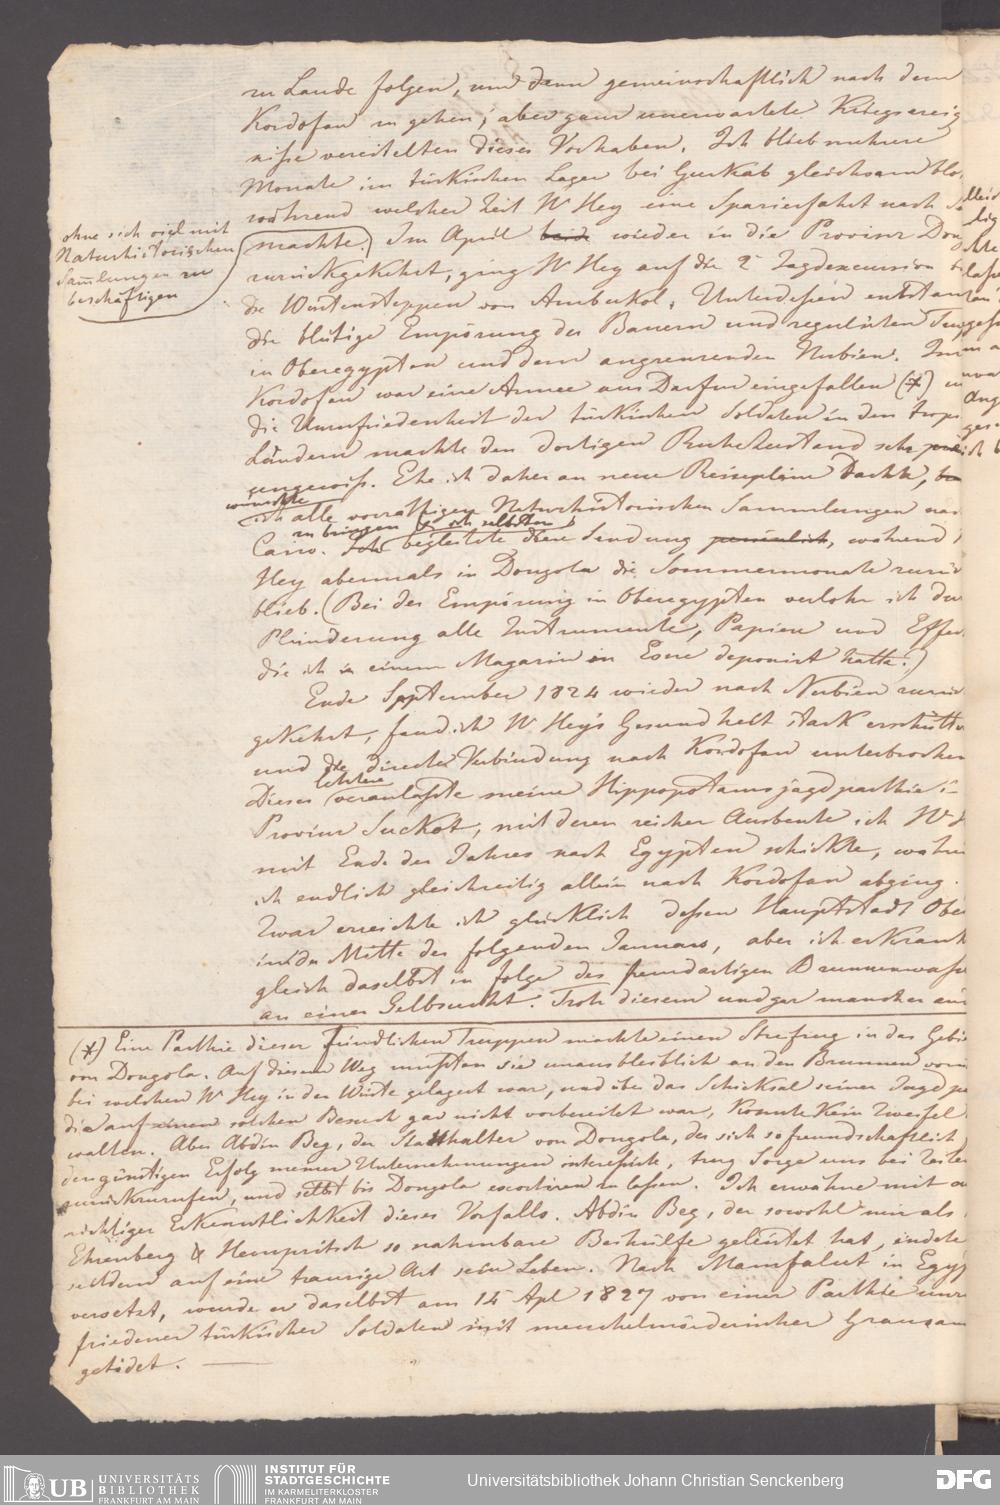 zu Lande folgen, und dann gemeinschaftlich nach dem
Kordofan zu gehen; aber ganz unerwartete Kriegsereig
niße vereitelten dieses Vorhaben. Ich blieb mehrere
Monate im türkischen Lager bei Gurkab gleichsam blo
während welcher Zeit Mr Hey eine Spazierfahrt nach
ohne sich viel mit
Naturhistorischen
Sammlungen zu
beschäftigen
machte. Im April beide wieder in die Provinz Don
zurückgekehrt, ging Mr Hey auf die 2te Jagdexcursion
die Wüstensteppen von Ambukol. Unterdeßen entstan
die blutige Empörung der Bauern und regulirten Trup
in Oberegypten und dem angrenzenden Nubien. Im
Kordofan war eine Armee aus Darfur eingefallen (*)
die Unzufriedenheit der türkischen Soldaten in den trop
Ländern machte den dortigen Ruhezustand sehr
ungewiß. Ehe ich daher an neue Reisepläne dachte,
wünschte
ich alle vorräthigen Naturhistorischen Sammlungen nac
zu bringen & ich selbsten
Cairo. Ich begleitete diese Sendung persönlich, während
Hey abermals in Dongola die Sommermonate zurück
blieb. (Bei der Empörung in Oberegypten verlohr ich du
Plünderung alle Instrumente, Papiere und Effec
die ich in einem Magazin in Esne deponirt hatte.)
Ende September 1824 wieder nach Nubien zurück
gekehrt, fand ich Mr Hey's Gesundheit stark erschütte
und die directe Verbindung nach Kordofan unterbrochen
letztere
Dieses veranlaßte meine Hippopotamsjagdparthie
Provinz Suckot, mit deren reicher Ausbeute ich Mr
mit Ende des Jahres nach Egypten schickte, währe
ich endlich gleichzeitig allein nach Kordofan abging.
Zwar erreichte ich glücklich deßen Hauptstadt Obe
in der Mitte des folgenden Januars, aber ich erkrank
gleich daselbst in folge des fremdartigen Brunnenwaße
an einer Gelbsucht. Trotz diesem und gar mancher
(*) Eine Parthie dieser feindlichen Truppen machte einen Streifzug in das Gebi
von Dongola. Auf diesem Weg mußten sie unausbleiblich an den Brunnen
bei welchen Mr Hey in der Wüste gelagert war, und über das Schicksal seiner Jagd
die auf einen solchen Besuch gar nicht vorbereitet war, konnte kein Zweifel
walten. Aber Abdin Beg, der Statthalter von Dongola, der sich so freundschaftlich
den günstigen Erfolg meiner Unternehmungen intereßirte, trug Sorge uns bei Zeiten
zurückzurufen, und selbst bis Dongola escortiren zu laßen. Ich erwähne mit
richtiger Erkenntlichkeit dieses Vorfalls. Abdin Beg, der sowohl mir als
Ehrenberg & Hemprich so nahmbare Beihülfe geleistet hat, endete
seitdem auf eine traurige Art sein Leben. Nach Manfalut in Egyp
versetzt, wurde er daselbst am 15 Apl 1827 von einer Parthie unzu
friedener türkischer Soldaten mit meuchelmörderischer Grausam
getödet.
UB
UNIVERSITÄTS
BIBLIOTHEK
FRANKFURT AM MAIN
INSTITUT FÜR
STADTGESCHICHTE
IM KARMELITERKLOSTER
FRANKFURT AM MAIN
Universitätsbibliothek Johann Christian Senckenberg
DFG